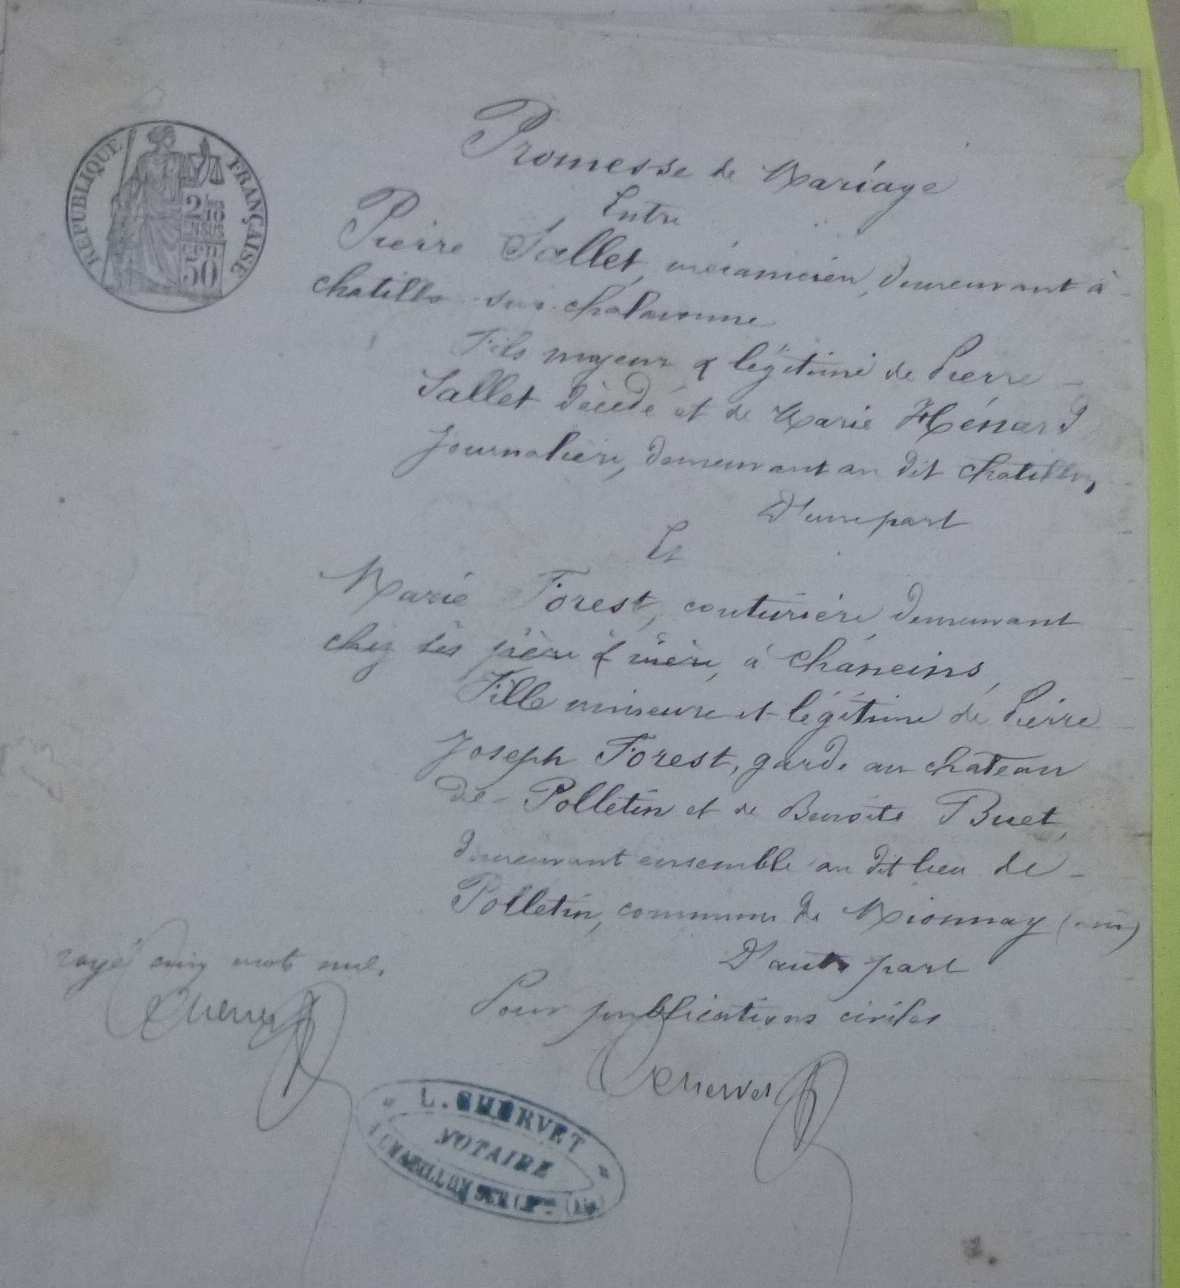 RÉPUBLIQUE FRANÇAISE
2/10
EN SUS
50
Promesse de Mariage
Entre
Pierre Sallet, mécanicien, demeurant à
chatillon sur chalaronne
Fils majeur & légitime de Pierre
Sallet décédé et de Marie Hénard
journalière, demeurant au dit chatillon,
D'une part
Et
Marie Forest, couturière demeurant
chez ses père & mère, à Chaneins,
Fille mineure et légitime de Pierre
Joseph Forest, garde au chateau
de Polletin et de Benoite Buet,
demeurant ensemble au dit lieu de
Polletin, commune de Mionnay (ain)
D'autre part
rayé cinq mots nuls.
Pour publications civiles
Chervet
Chervet
L. CHERVET
NOTAIRE
CHATILLON SUR CHne (Ain)